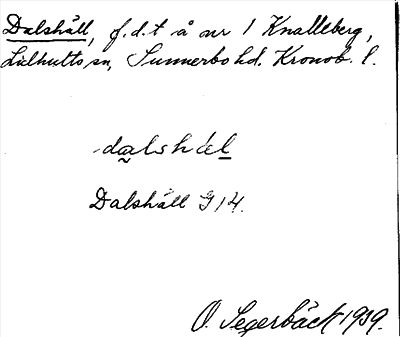 Dalshäll, f.d.t å nr 1 Knalleberg,
Sunnerbo hd. Kronob. l.
dalshäl
Dalshäll G 14.
O. Segerbäck 1939.